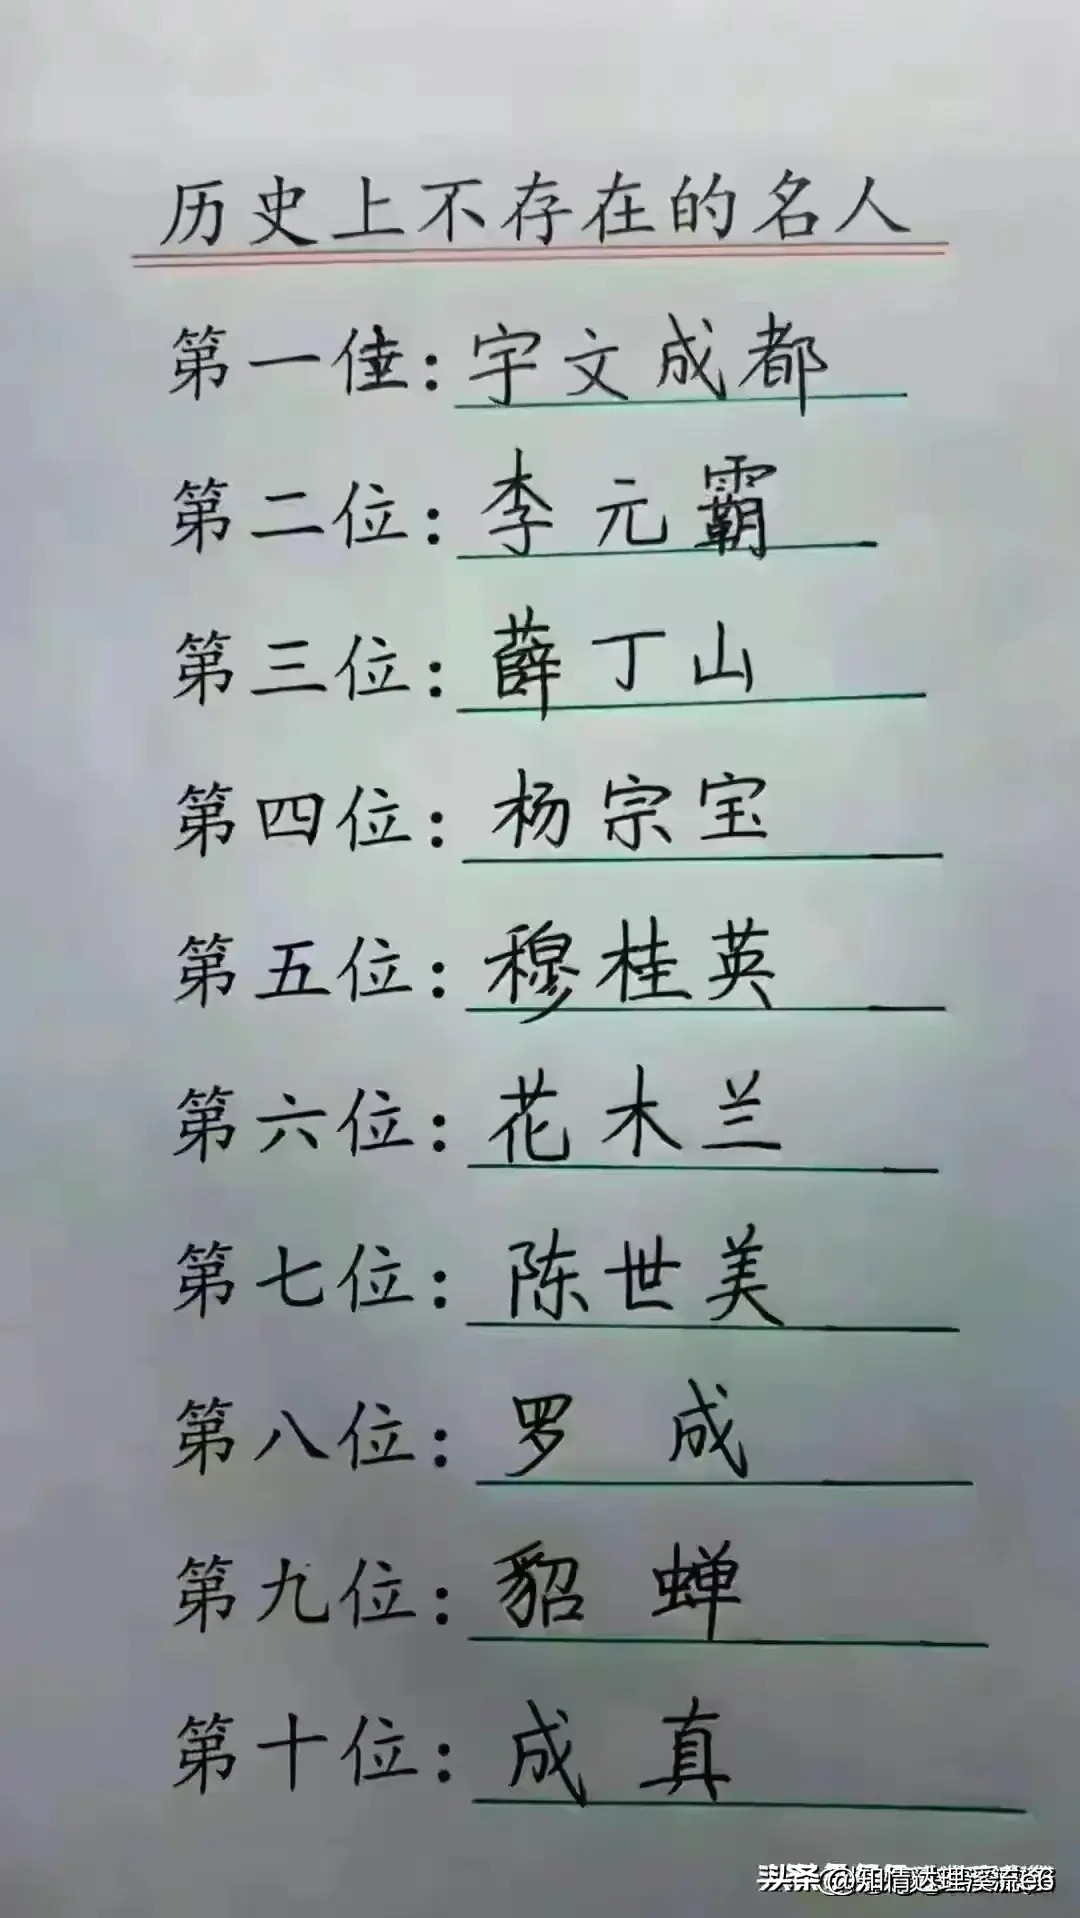 历史上不存在的名人
第一位：宇文成都
第二位：李元霸
第三位：薛丁山
第四位：杨宗宝
第五位：穆桂英
第六位：花木兰
第七位：陈世美
第八位：罗成
第九位：貂蝉
第十位：成真
头条 @知情达理溪流e6